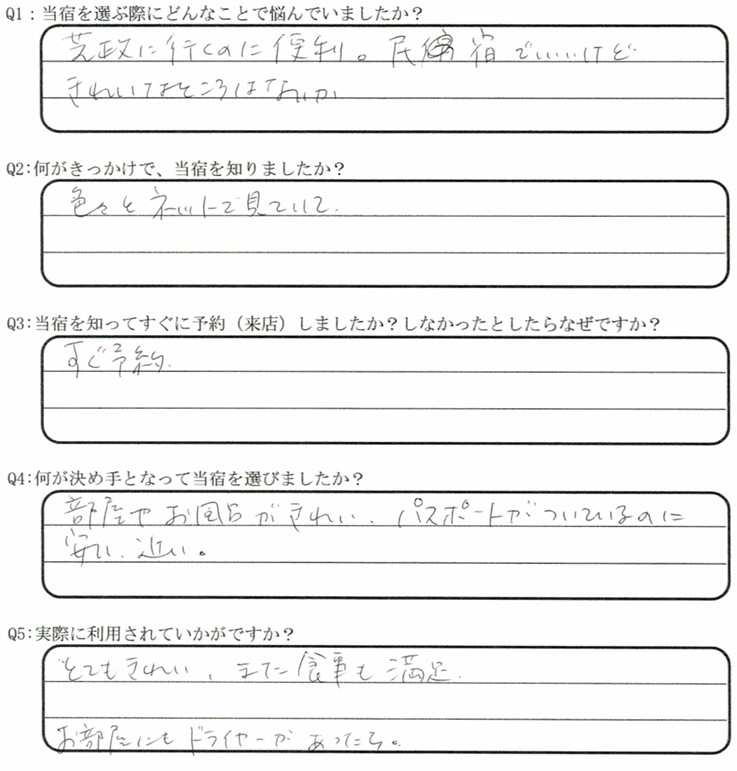 Q1：当宿を選ぶ際にどんなことで悩んでいましたか？
芝政に行くのに便利。民宿でいいけど
きれいなところはないか
Q2：何がきっかけで、当宿を知りましたか？
色々とネットで見ていて.
Q3：当宿を知ってすぐに予約（来店）しましたか？しなかったとしたらなぜですか？
すぐ予約.
Q4：何が決め手となって当宿を選びましたか？
部屋やお風呂がきれい、パスポートがついているのに
安い、近い。
Q5：実際に利用されていかがですか？
とてもきれい、また食事も満足.
お部屋にもドライヤーがあったら。